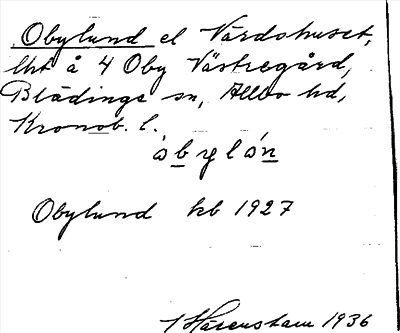 Obylund el Vårdshuset,
lht å 4 Oby Västregård,
Blädinge sn, Allbo hd,
Kronob. l.
Obylund kb 1927
1936